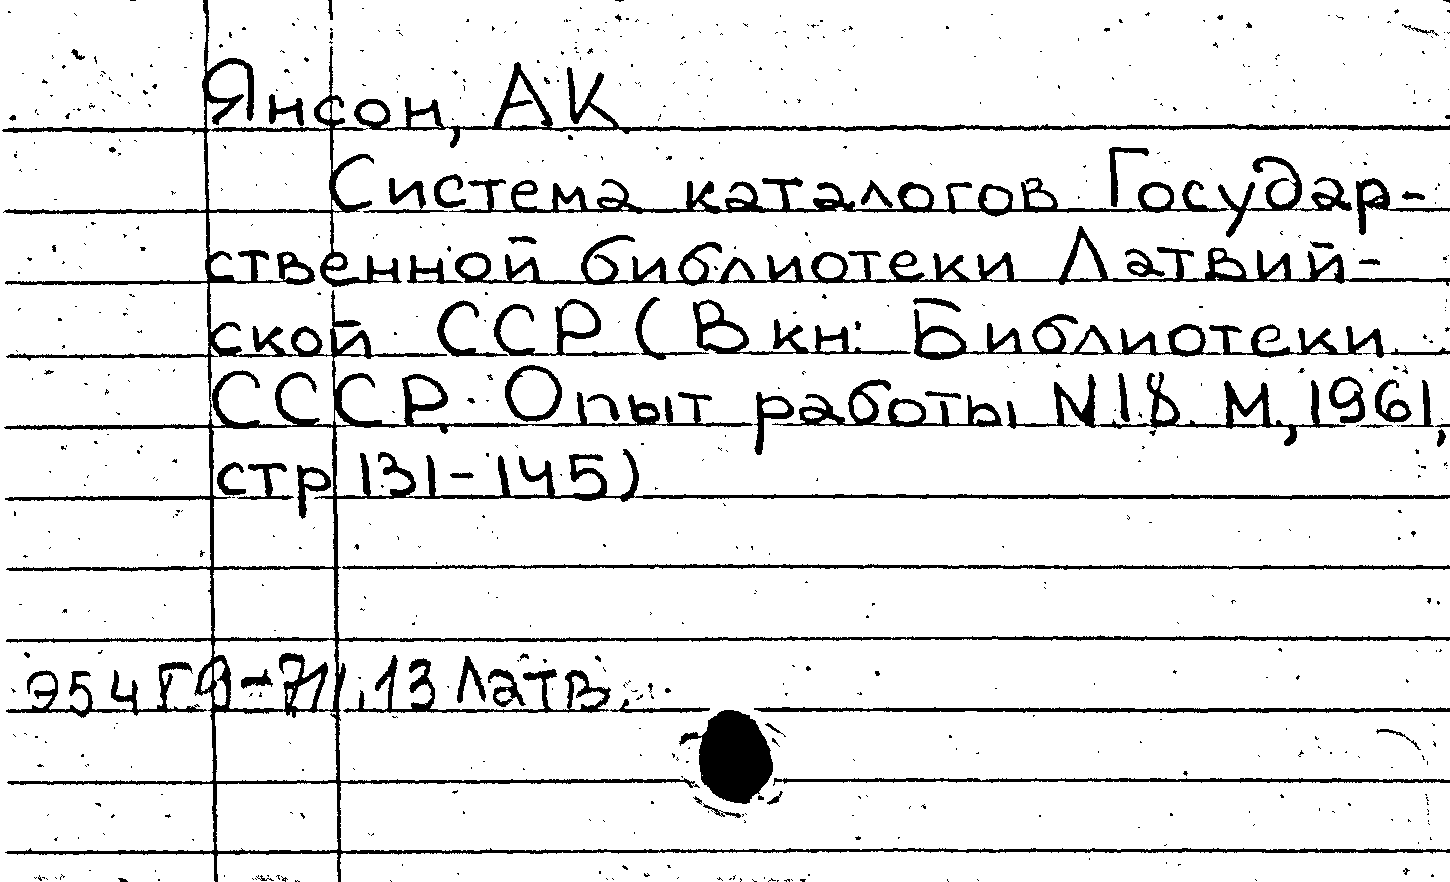 Янсон, АК
Система каталогов Государ-
ственной библиотеки Латвий-
ской ССР (В кн: Библиотеки
СССР. Опыт работы N18 М, 1961,
стр 131-145)
Э54 Г9-711.13 Латв.